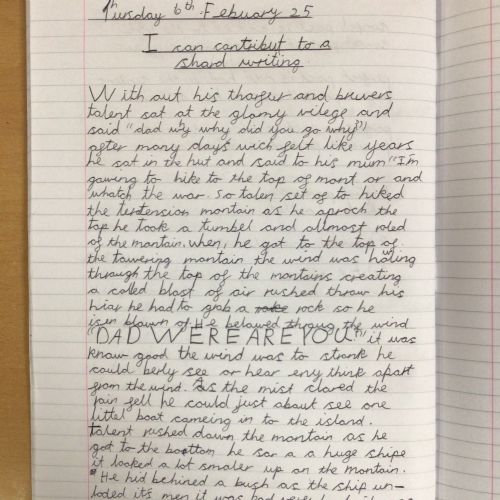 Thursday 6th Febuary 25
I can contribut to a
shard writing.
With out his tharfur and brewers
talent sat at the glomy vilege and
said "dad why why did you go why?"
after many days wich felt like years
he sat in the hut and said to his mum "I'm
gawing to hike to the top of mont or and
whatch the war. So talen set of to hiked
the tentension montain as he aproch the
top he took a tumbel and allmost roled
of the montain. When, he got to the top of
the tawering montain the wind was haling
through the top of the montains creating
a colled blast of air rushed thraw his
hiar he had to grab a rock so he
isen blawn of. He belawed throug the wind
"DAD WERE ARE YOU?" it was
know good the wind was to strank he
could berly see or hear eny think apart
from the wind. As the mist clared the
rain fell he could just about see one
littel boat cameing in to the island.
Talent rushed dawn the montain as he
got to the bottom he sar a a huge shipe
it looked a lot smaler up on the montain.
He hid behined a bush as the ship un-
loded it's men it was